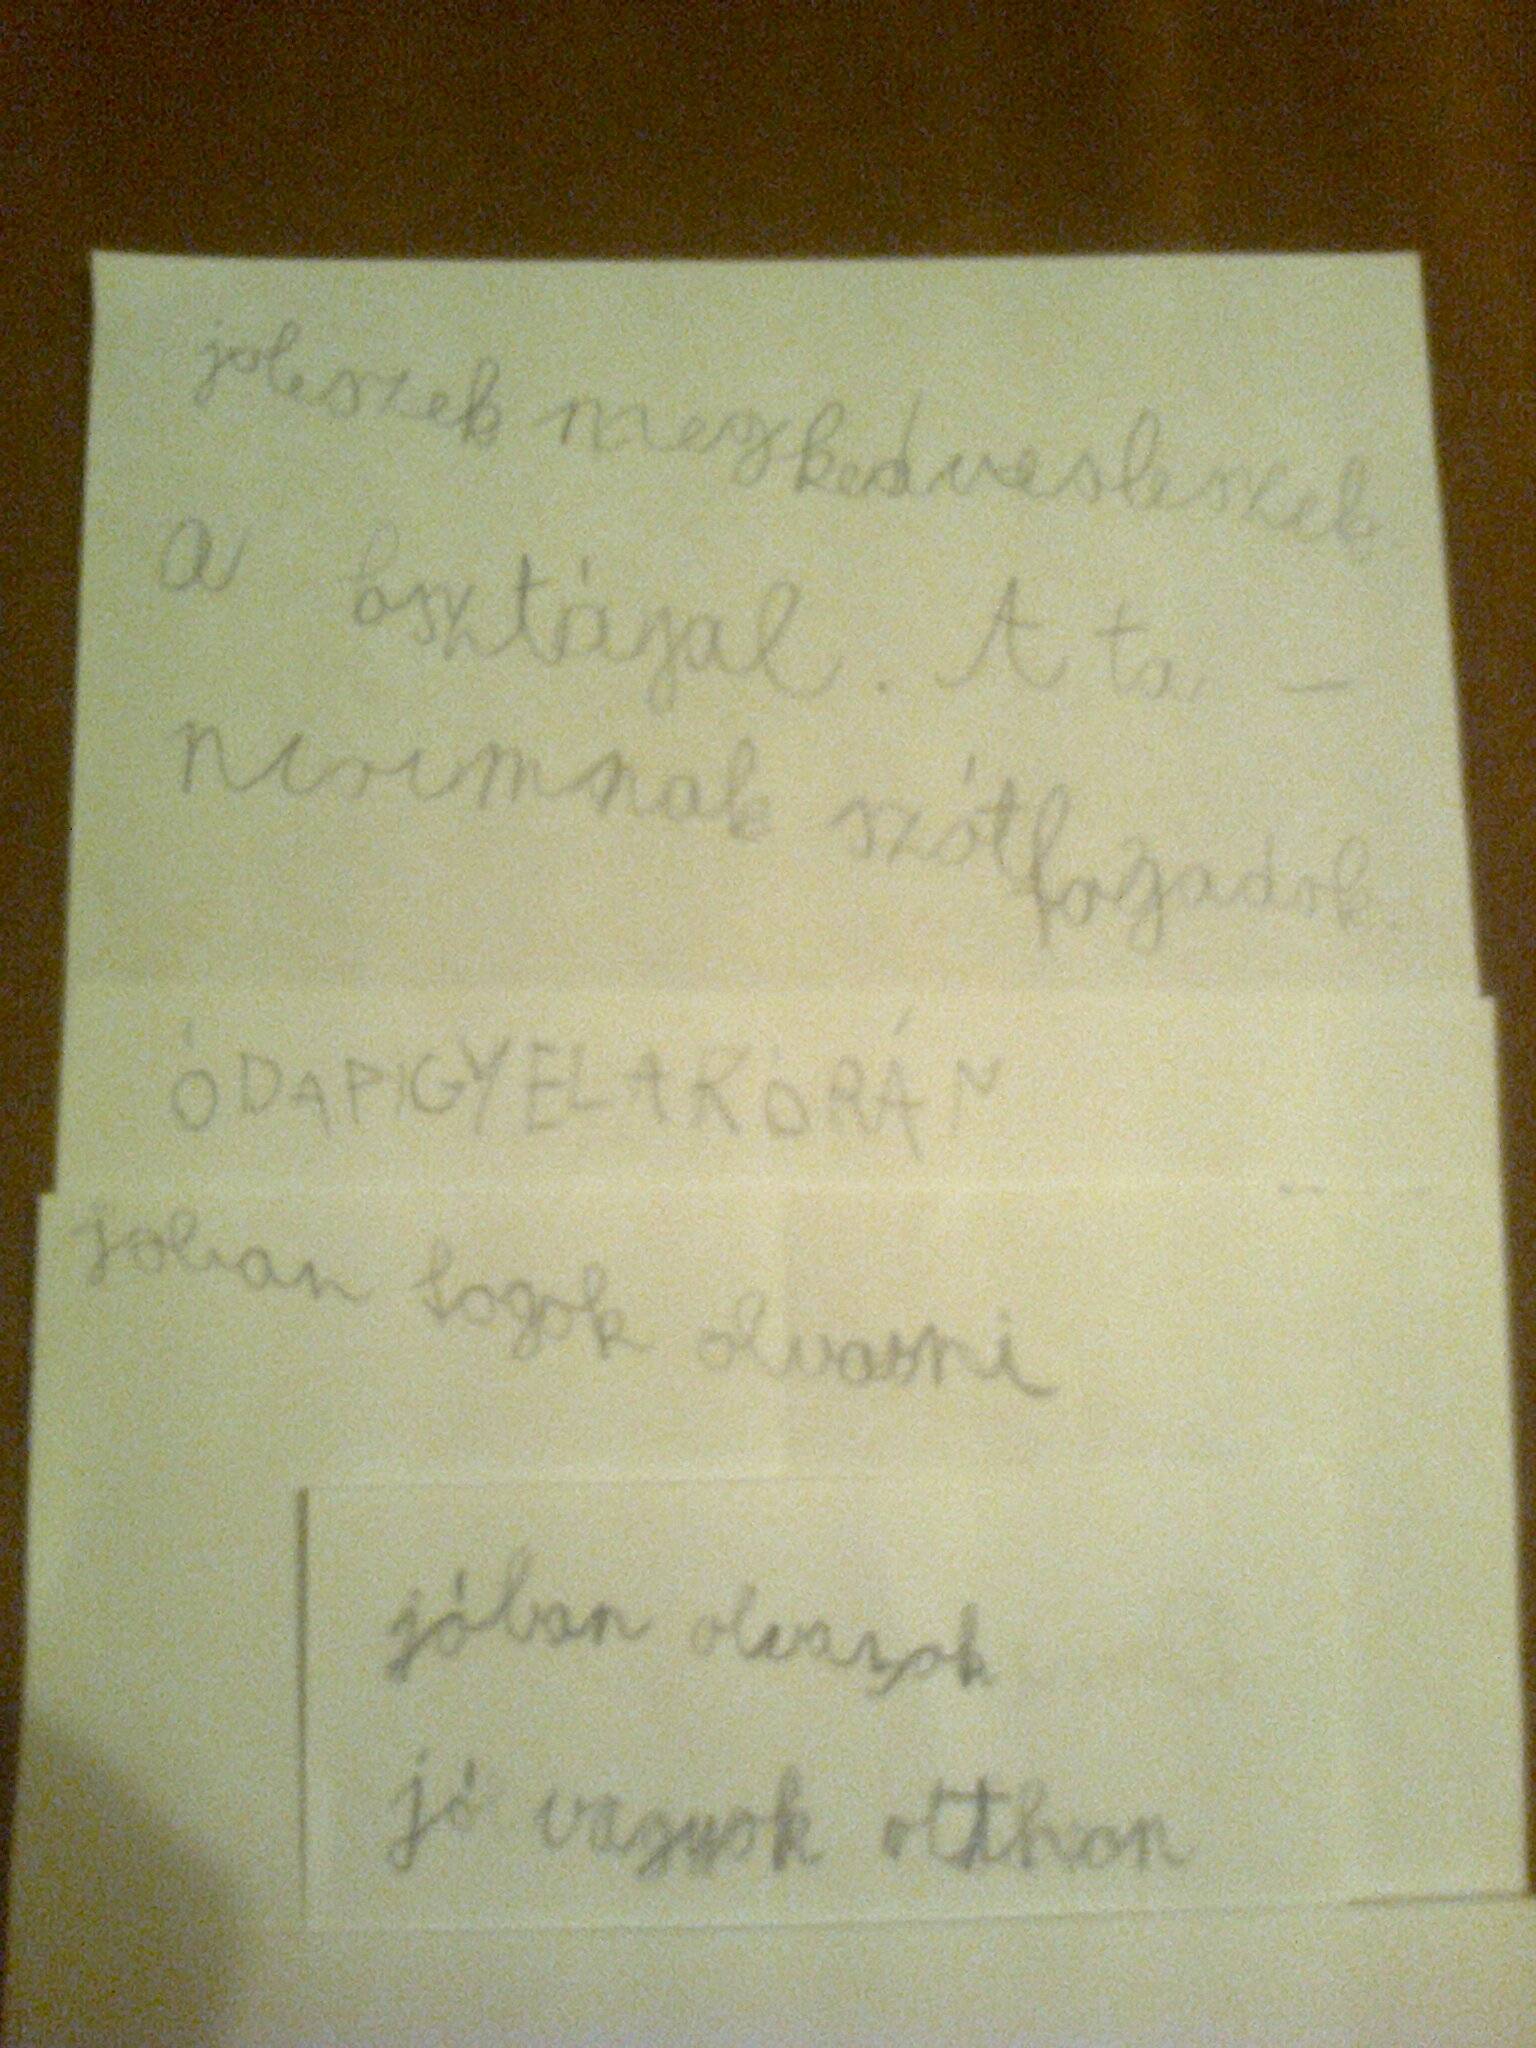 joleszek megkedvesleszek
a osztájal. A ta -
nívimnak szótfogadok.
ÓDAPIGYELAKÓRÁN
joban fogok olvasni
jóban olvazok
jó vagyok otthon